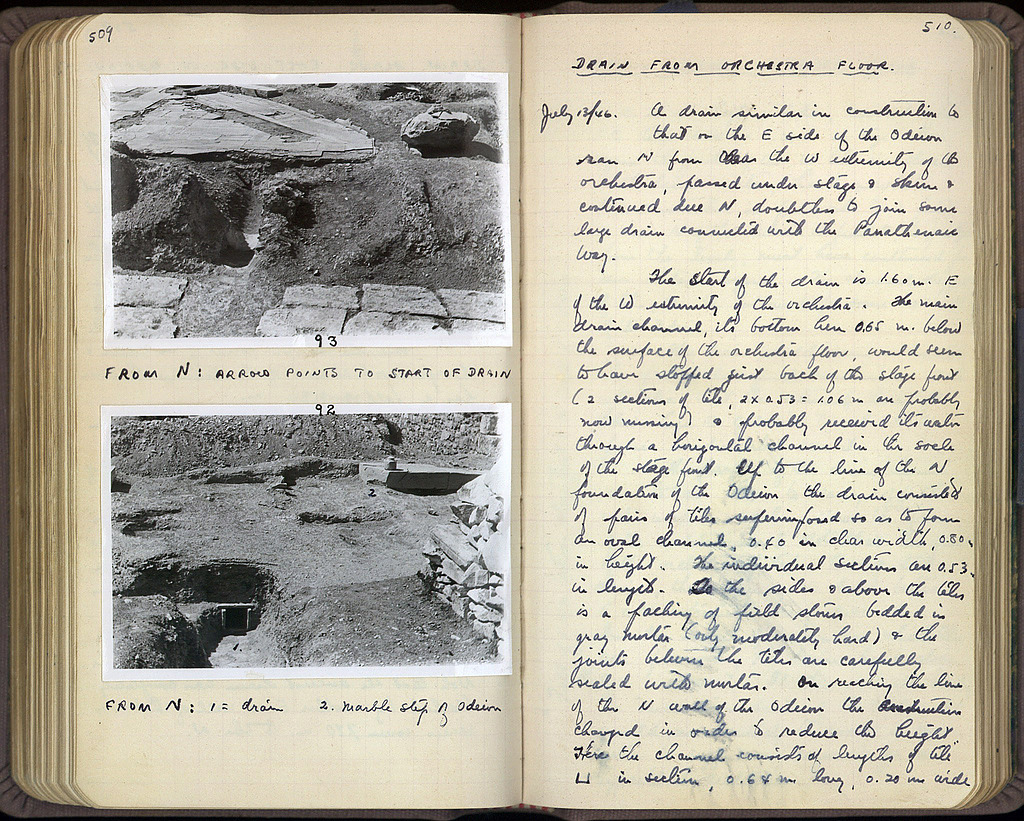 509
93
FROM N: ARROW POINTS TO START OF DRAIN
92
2
1
FROM N: 1 = drain 2. marble step of Odeion
510.
DRAIN FROM ORCHESTRA FLOOR.
July 13/46. A drain similar in construction to
that on the E side of the Odeion
ran N from the W extremity of the
orchestra, passed under stage & skene &
continued due N, doubtless to join some
large drain connected with the Panathenaic
Way.
The start of the drain is 1.60 m. E
of the W extremity of the orchestra. The main
drain channel, its bottom here 0.65 m. below
the surface of the orchestra floor, would seem
to have stopped just back of the stage front
(2 sections of tile, 2 x 0.53 = 1.06 m are probably
now missing) & probably received its water
through a horizontal channel in the socle
of the stage front. Up to the line of the N
foundation of the Odeion the drain consisted
of pairs of tiles superimposed so as to form
an oval channel, 0.40 in clear width, 0.80
in height. The individual sections are 0.53
in length. To the sides & above the tiles
is a packing of field stones bedded in
gray mortar (only moderately hard) & the
joints between the tiles are carefully
sealed with mortar. On reaching the line
of the N wall of the Odeion the construction
changed in order to reduce the height
Here the channel consists of lengths of tile
⊔ in section, 0.64 m long, 0.20 m wide